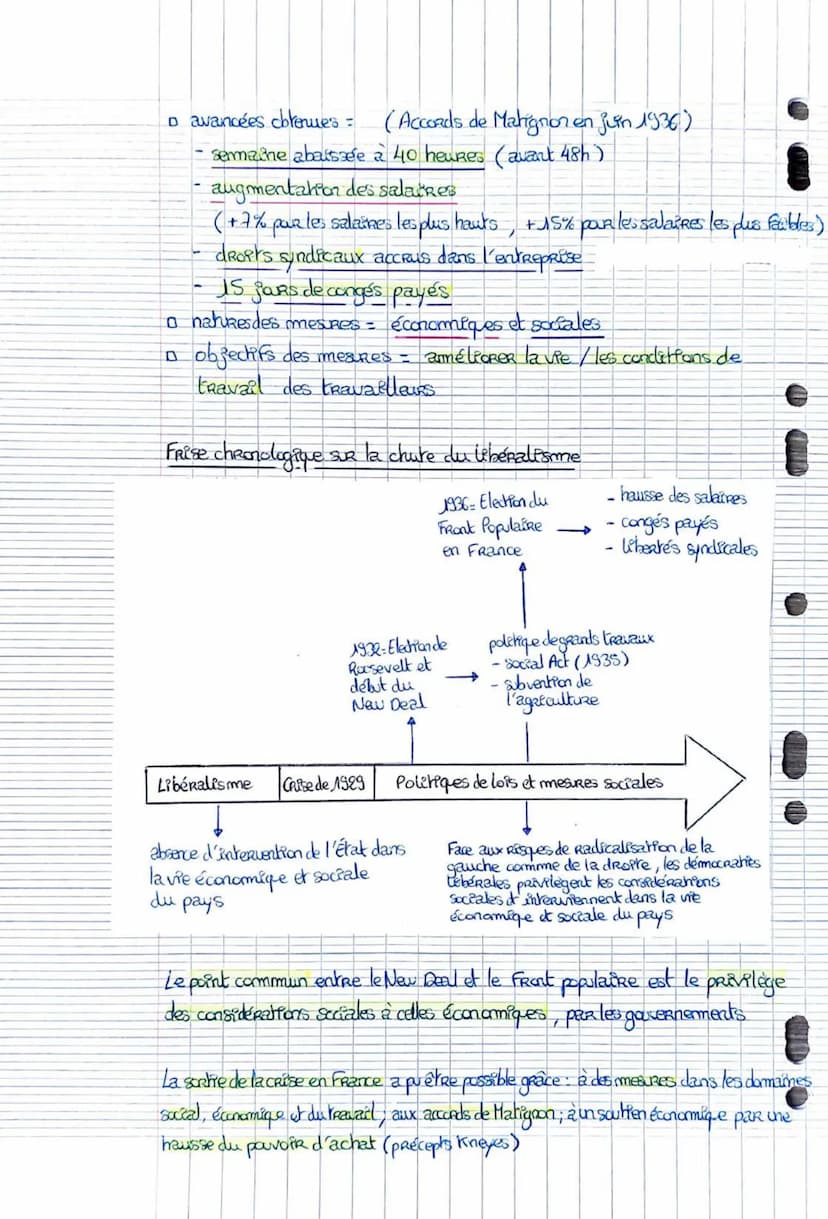 ▫ avancées obtenues = (Accords de Matignon en juin 1936)
- semaine abaissée à 40 heures (avant 48h)
- augmentation des salaires
(+7% pour les salaires les plus hauts, +15% pour les salaires les plus faibles)
- droits syndicaux accrus dans l'entreprise
- 15 jours de congés payés
▫ natures des mesures = économiques et sociales
▫ objectifs des mesures = améliorer la vie / les conditions de
travail des travailleurs
Frise chronologique sur la chute du libéralisme
1936 = Election du
Front Populaire
en France
- hausse des salaires
- congés payés
- libertés syndicales
1932 = Election de
Roosevelt et
début du
New Deal
politique de grands travaux
- social Act (1935)
- subvention de
l'agriculture
Libéralisme
Crise de 1929
Politiques de lois et mesures sociales
absence d'intervention de l'État dans
la vie économique et sociale
du pays
Face aux risques de radicalisation de la
gauche comme de la droite, les démocraties
libérales privilégent les considérations
sociales et interviennent dans la vie
économique et sociale du pays
Le point commun entre le New Deal et le Front populaire est le privilège
des considérations sociales à celles économiques, par les gouvernements
La sortie de la crise en France a pu être possible grâce : à des mesures dans les domaines
social, économique et du travail ; aux accords de Matignon ; à un soutien économique par une
hausse du pouvoir d'achat (précepts Kneyes)